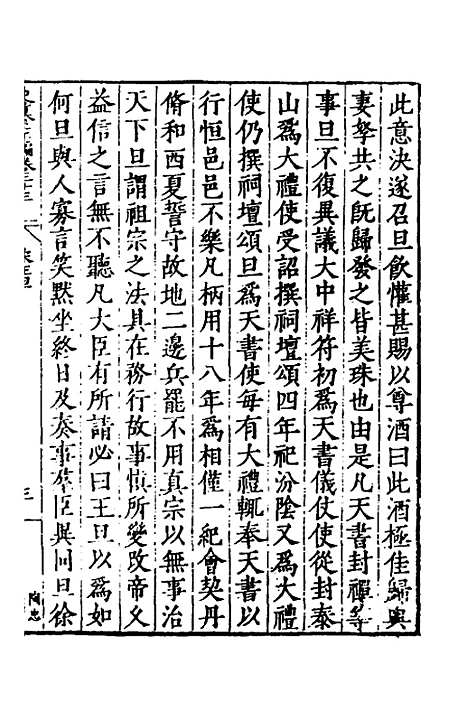 此意決遂召旦飲懽甚賜以尊酒曰此酒極佳歸與
妻孥共之旣歸發之皆美珠也由是凡天書封禪等
事旦不復異議大中祥符初爲天書儀仗使從封泰
山爲大禮使受詔撰祠壇頌四年祀汾陰又爲大禮
使仍撰祠壇頌旦爲天書使每有大禮輒奉天書以
行恒邑邑不樂凡柄用十八年爲相僅一紀會契丹
脩和西夏誓守故地二邊兵罷不用真宗以無事治
天下旦謂祖宗之法具在務行故事慎所變改帝久
益信之言無不聽凡大臣有所請必曰王旦以爲如
何旦與人寡言笑默坐終日及奏事羣臣異同旦徐
卷三十三
三
陶忠